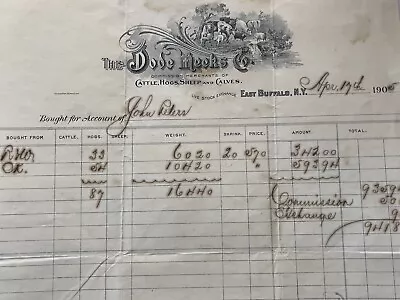 The Dode Meeks Co.
Commission Merchants of
Cattle, Hogs, Sheep and Calves.
Live Stock Exchange
East Buffalo, N.Y. Apr 19th 1905
Bought for Account of John
BOUGHT FROM CATTLE. HOGS. SHEEP. WEIGHT. SHRINK. PRICE. AMOUNT TOTAL.
33 6020 20 570 34200
54 10420 " 59394
87 16440 9359
Commission 50
Exchange 9
9418